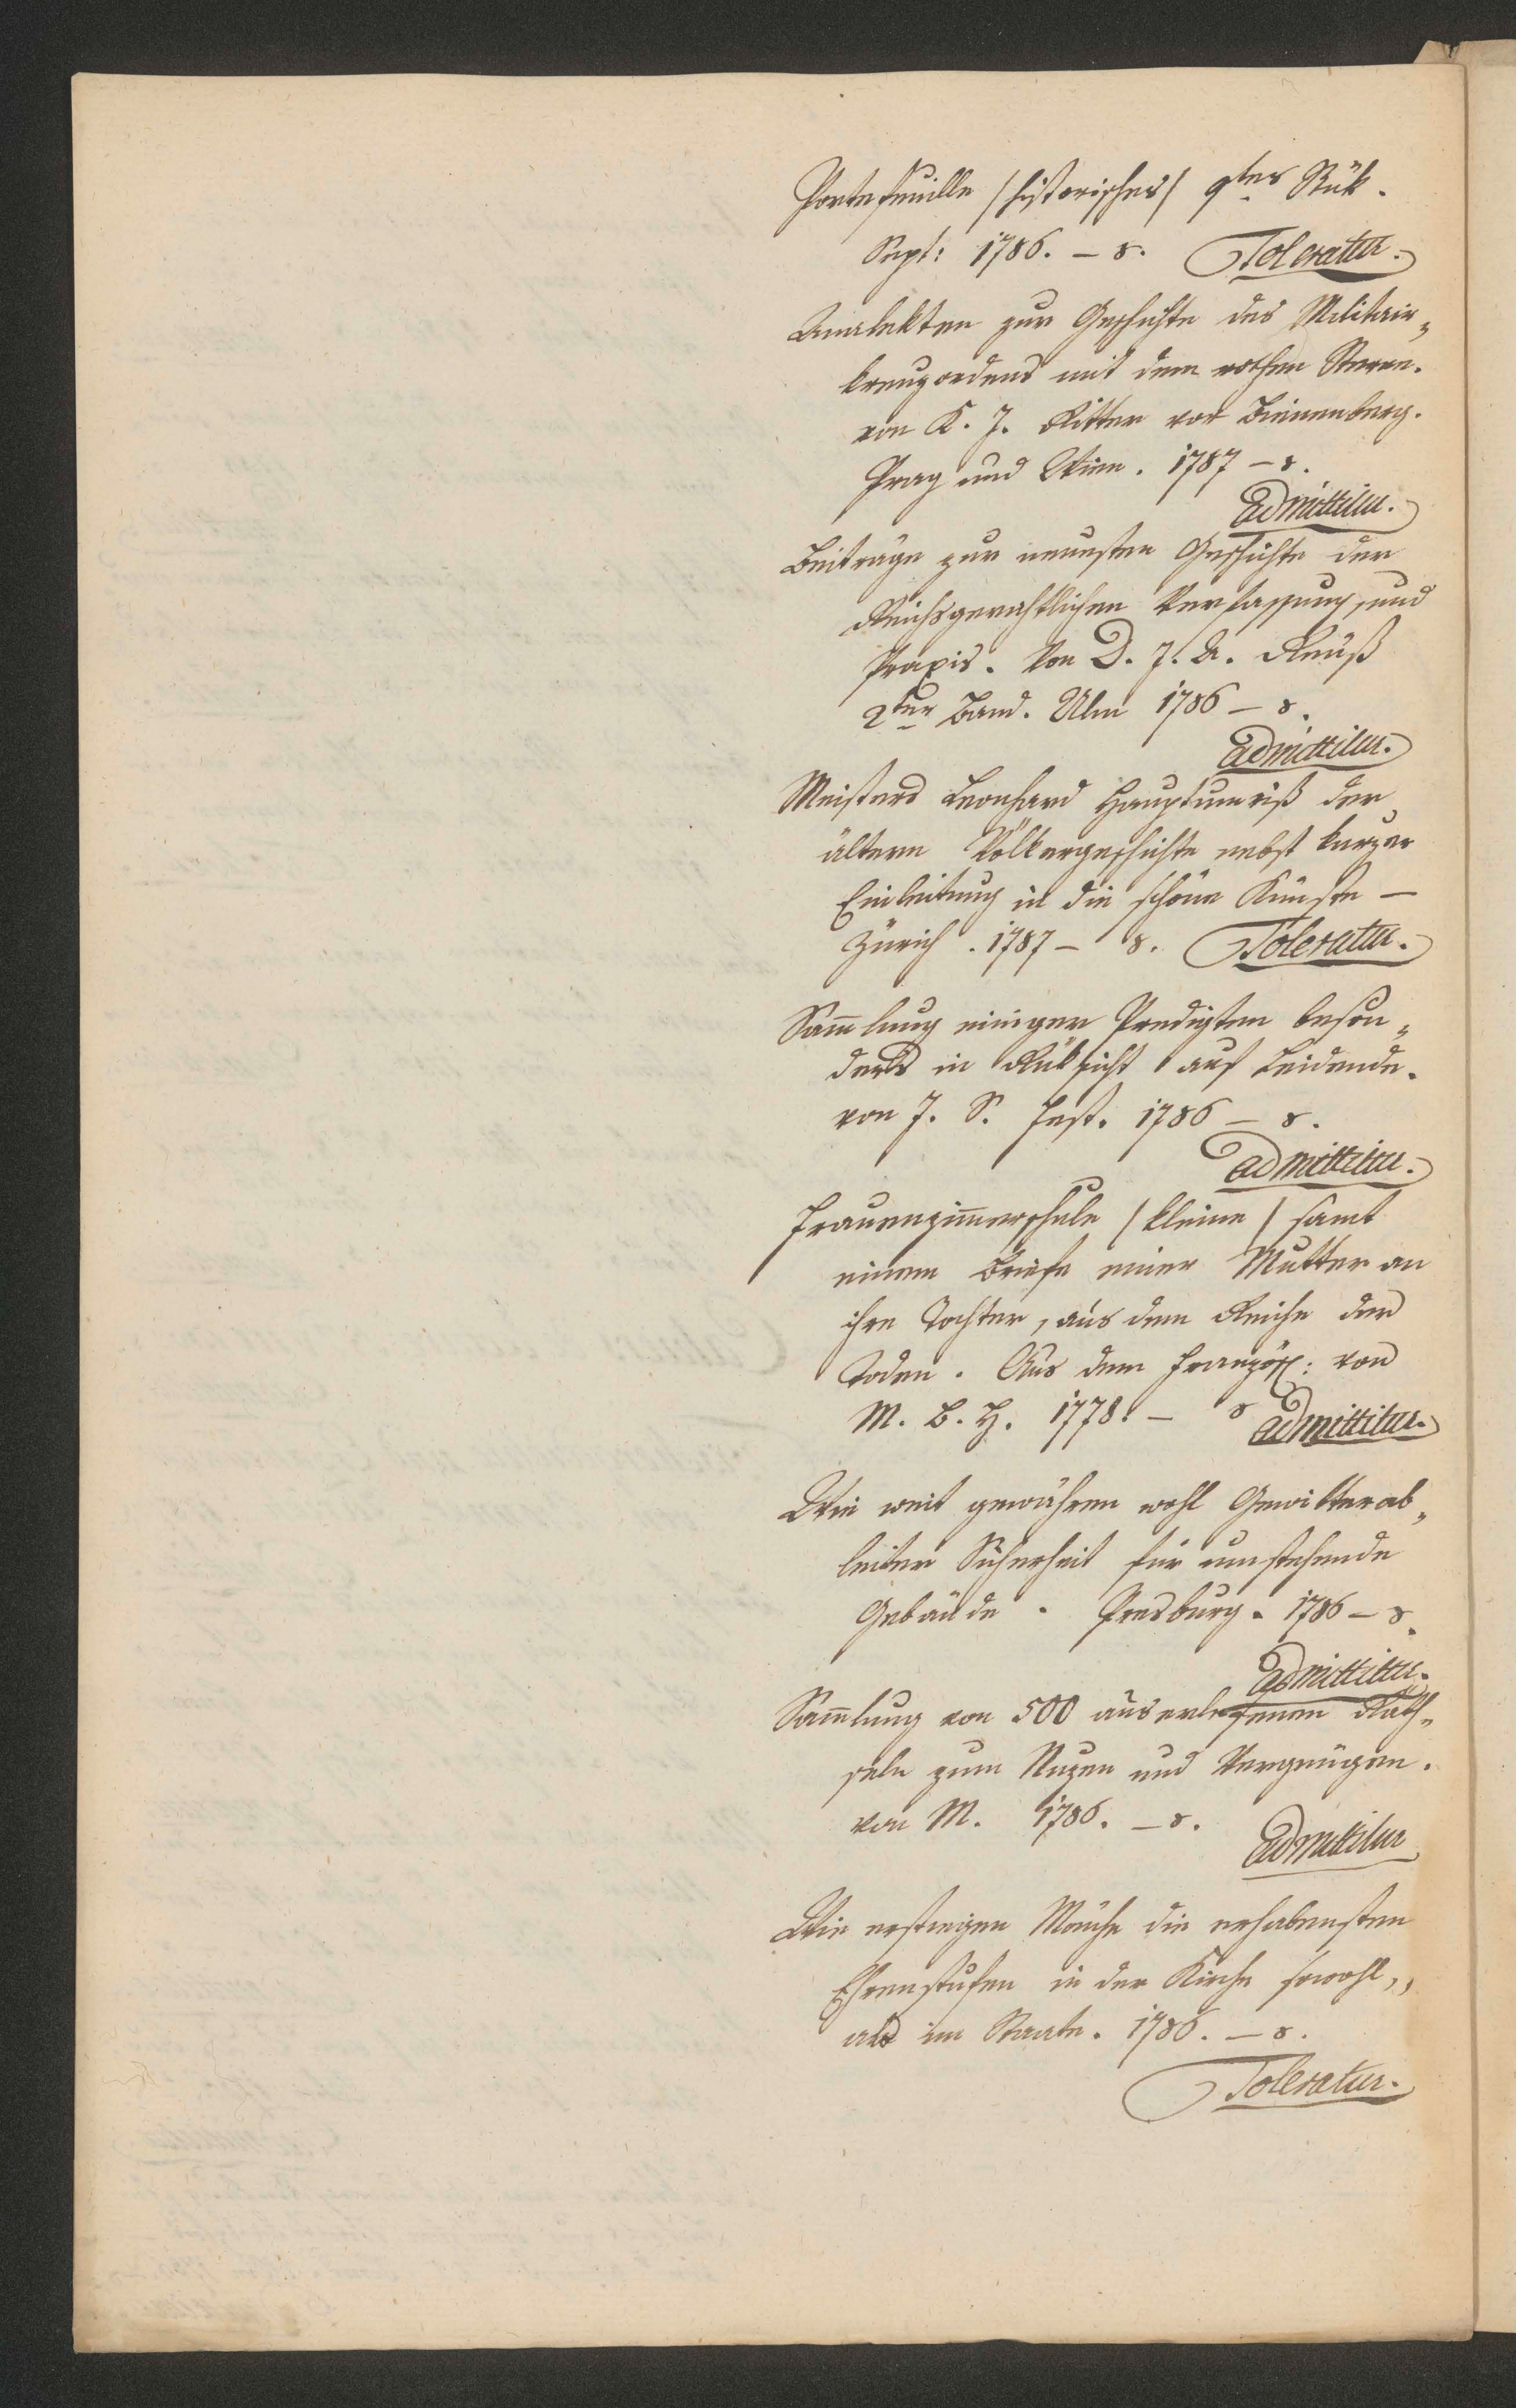 Portefeuille /historisches/ 9tes Stük.
Sept: 1786. – 8. Toleratur.
Analekten zur Geschichte des Militair„
kreuzordens mit dem rothen Stern.
von K. J. Ritter von Bienenberg.
Prag und Wien. 1787 – 8.
Admittitur.
Beiträge zur neuesten Geschichte der
Reichsgerichtlichen Verfassung, und
Praxis. Von D. J. A. Reuß
2ter Band. Ulm 1786 – 8.
Admittitur.
Meisters Leonhard Hauptumriß der
ältern Völkergeschichte nebst kurzer
Einleitung in die schöne Künste –
Zürich. 1787 – 8. Toleratur.
Sam̄lung einiger Predigten beson„
ders in Rüksicht auf Leidende.
von J. S. Fest. 1786 – 8.
Admittitur.
Frauenzim̄erschule /kleine/ samt
einem Briefe einer Mutter an
ihre Tochter, aus dem Reiche der
Toden. Aus dem Französ: von
M. B. H. 1778. – 8 Admittitur.
Wie weit gewähren wohl Gewitterab„
leiter Sicherheit für umstehende
Gebäude. Presburg. 1786 – 8.
Admittitur.
Sam̄lung von 500 auserlesenen Räth„
seln zum Nuzen und Vergnügen.
von M. 1786. – 8.
Admittitur
Wie erstiegen Mönche die erhabensten
Ehrenstufen in der Kirche sowohl,
als im Staate. 1786. – 8.
Toleratur.